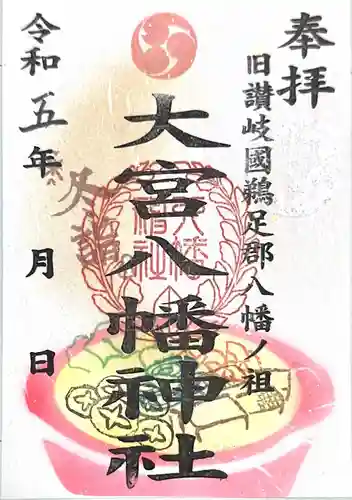 奉拝
旧讃岐國鵜足郡八幡ノ祖
大宮八幡神社
冬詣
令和五年 月 日